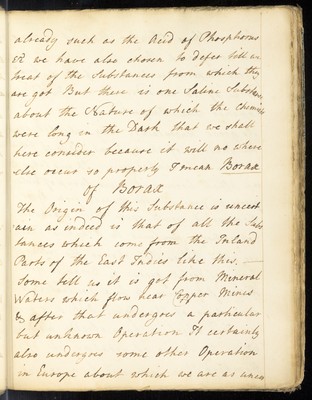 already such as the Acid of Phosphorus
&c we have also chosen to defer till we
treat of the Substances from which they
are got But there is one Saline Substance
about the Nature of which the Chemists
were long in the Dark that we shall
here consider because it will no where
else occur so properly I mean Borax
of Borax
The Origin of this Substance is uncert
ain as indeed is that of all the Subs
tances which come from the Inland
Parts of the East Indies like this. —
Some tell us it is got from Mineral
Waters which flow near Copper Mines
& after that undergoes a particular
but unknown Operation It certainly
also undergoes some other Operation
in Europe about which we are as uncer